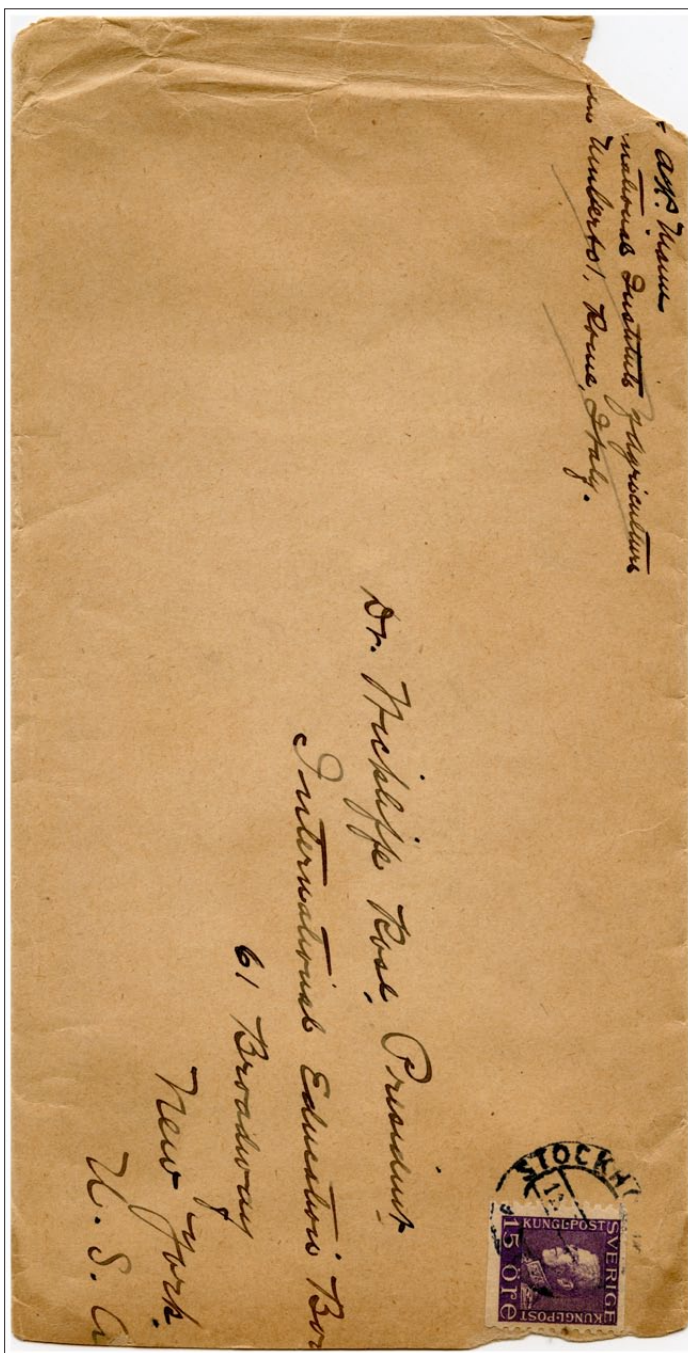 A.R. Mann
national Institute of Agriculture
Umberto I, Rome, Italy.
Dr. Wickliffe Rose, President
International Education Bo
61 Broadway
New York
U. S. A
STOCKH
SVERIGE
KUNGL·POST
KUNGL·POST
15 ÖRE